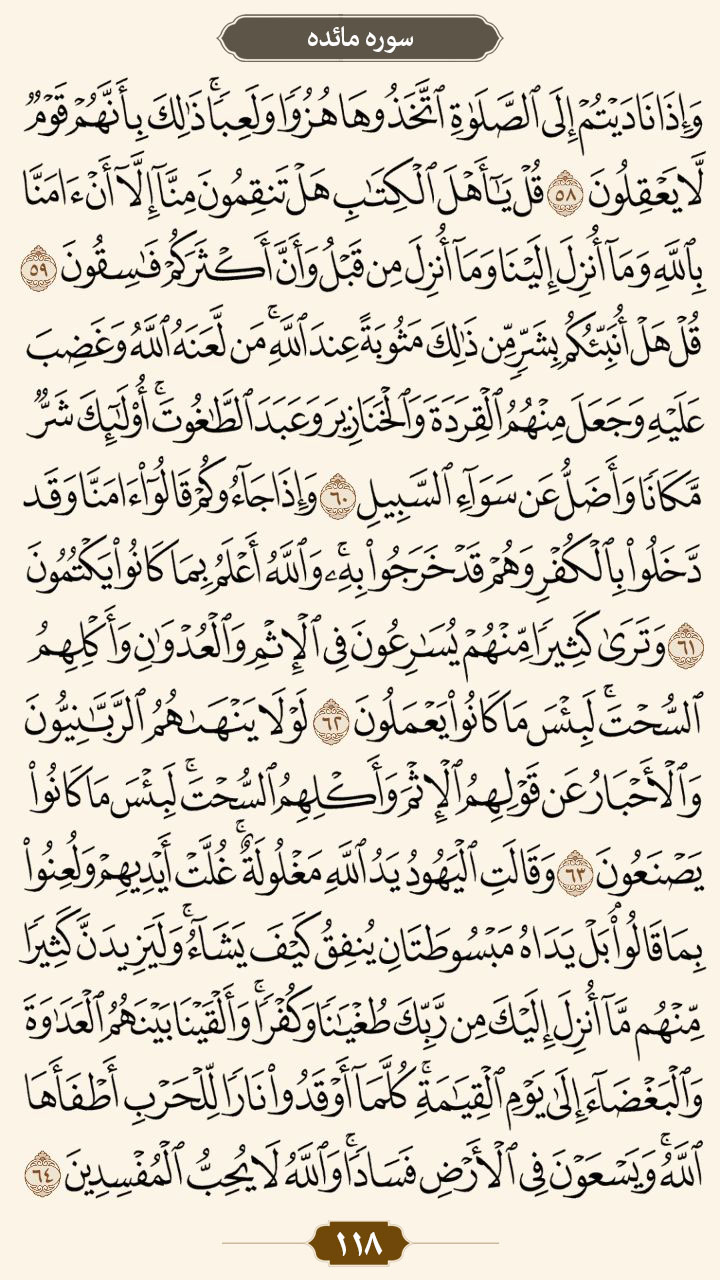 سوره مائده
وَإِذَا نَادَيْتُمْ إِلَى ٱلصَّلَوٰةِ ٱتَّخَذُوهَا هُزُوًا وَلَعِبًا ۚ ذَٰلِكَ بِأَنَّهُمْ قَوْمٌ
لَّا يَعْقِلُونَ ٥٨ قُلْ يَـٰٓأَهْلَ ٱلْكِتَـٰبِ هَلْ تَنقِمُونَ مِنَّآ إِلَّآ أَنْ ءَامَنَّا
بِٱللَّهِ وَمَآ أُنزِلَ إِلَيْنَا وَمَآ أُنزِلَ مِن قَبْلُ وَأَنَّ أَكْثَرَكُمْ فَـٰسِقُونَ ٥٩
قُلْ هَلْ أُنَبِّئُكُم بِشَرٍّ مِّن ذَٰلِكَ مَثُوبَةً عِندَ ٱللَّهِ ۚ مَن لَّعَنَهُ ٱللَّهُ وَغَضِبَ
عَلَيْهِ وَجَعَلَ مِنْهُمُ ٱلْقِرَدَةَ وَٱلْخَنَازِيرَ وَعَبَدَ ٱلطَّـٰغُوتَ ۚ أُو۟لَـٰٓئِكَ شَرٌّ
مَّكَانًا وَأَضَلُّ عَن سَوَآءِ ٱلسَّبِيلِ ٦٠ وَإِذَا جَآءُوكُمْ قَالُوٓا۟ ءَامَنَّا وَقَد
دَّخَلُوا۟ بِٱلْكُفْرِ وَهُمْ قَدْ خَرَجُوا۟ بِهِۦ ۚ وَٱللَّهُ أَعْلَمُ بِمَا كَانُوا۟ يَكْتُمُونَ
٦١ وَتَرَىٰ كَثِيرًا مِّنْهُمْ يُسَـٰرِعُونَ فِى ٱلْإِثْمِ وَٱلْعُدْوَٰنِ وَأَكْلِهِمُ
ٱلسُّحْتَ ۚ لَبِئْسَ مَا كَانُوا۟ يَعْمَلُونَ ٦٢ لَوْلَا يَنْهَىٰهُمُ ٱلرَّبَّـٰنِيُّونَ
وَٱلْأَحْبَارُ عَن قَوْلِهِمُ ٱلْإِثْمَ وَأَكْلِهِمُ ٱلسُّحْتَ ۚ لَبِئْسَ مَا كَانُوا۟
يَصْنَعُونَ ٦٣ وَقَالَتِ ٱلْيَهُودُ يَدُ ٱللَّهِ مَغْلُولَةٌ ۚ غُلَّتْ أَيْدِيهِمْ وَلُعِنُوا۟
بِمَا قَالُوا۟ ۘ بَلْ يَدَاهُ مَبْسُوطَتَانِ يُنفِقُ كَيْفَ يَشَآءُ ۚ وَلَيَزِيدَنَّ كَثِيرًا
مِّنْهُم مَّآ أُنزِلَ إِلَيْكَ مِن رَّبِّكَ طُغْيَـٰنًا وَكُفْرًا ۚ وَأَلْقَيْنَا بَيْنَهُمُ ٱلْعَدَٰوَةَ
وَٱلْبَغْضَآءَ إِلَىٰ يَوْمِ ٱلْقِيَـٰمَةِ ۚ كُلَّمَآ أَوْقَدُوا۟ نَارًا لِّلْحَرْبِ أَطْفَأَهَا
ٱللَّهُ ۚ وَيَسْعَوْنَ فِى ٱلْأَرْضِ فَسَادًا ۚ وَٱللَّهُ لَا يُحِبُّ ٱلْمُفْسِدِينَ ٦٤
١١٨